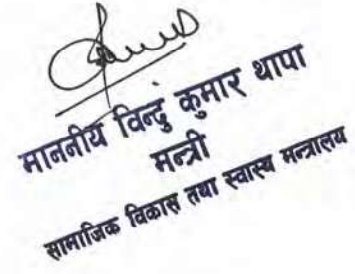 माननीय विन्दु कुमार थापा
मन्त्री
सामाजिक विकास तथा स्वास्थ्य मन्त्रालय